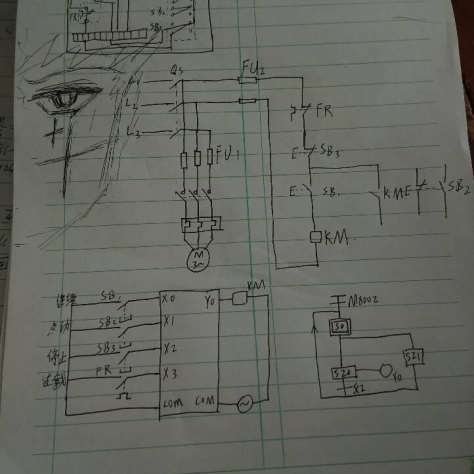 SB₂
SB₁
QS
FU₂
L₂
L₃
FU₁
FR
E SB₃
E SB₁
KM E
SB₂
KM
M
3~
连续 SB₁ X0 Y0 KM
点动 SB₂ X1
停止 SB₃ X2
过载 FR X3
COM COM
M8002
S0
S20
Y0
S21
X2